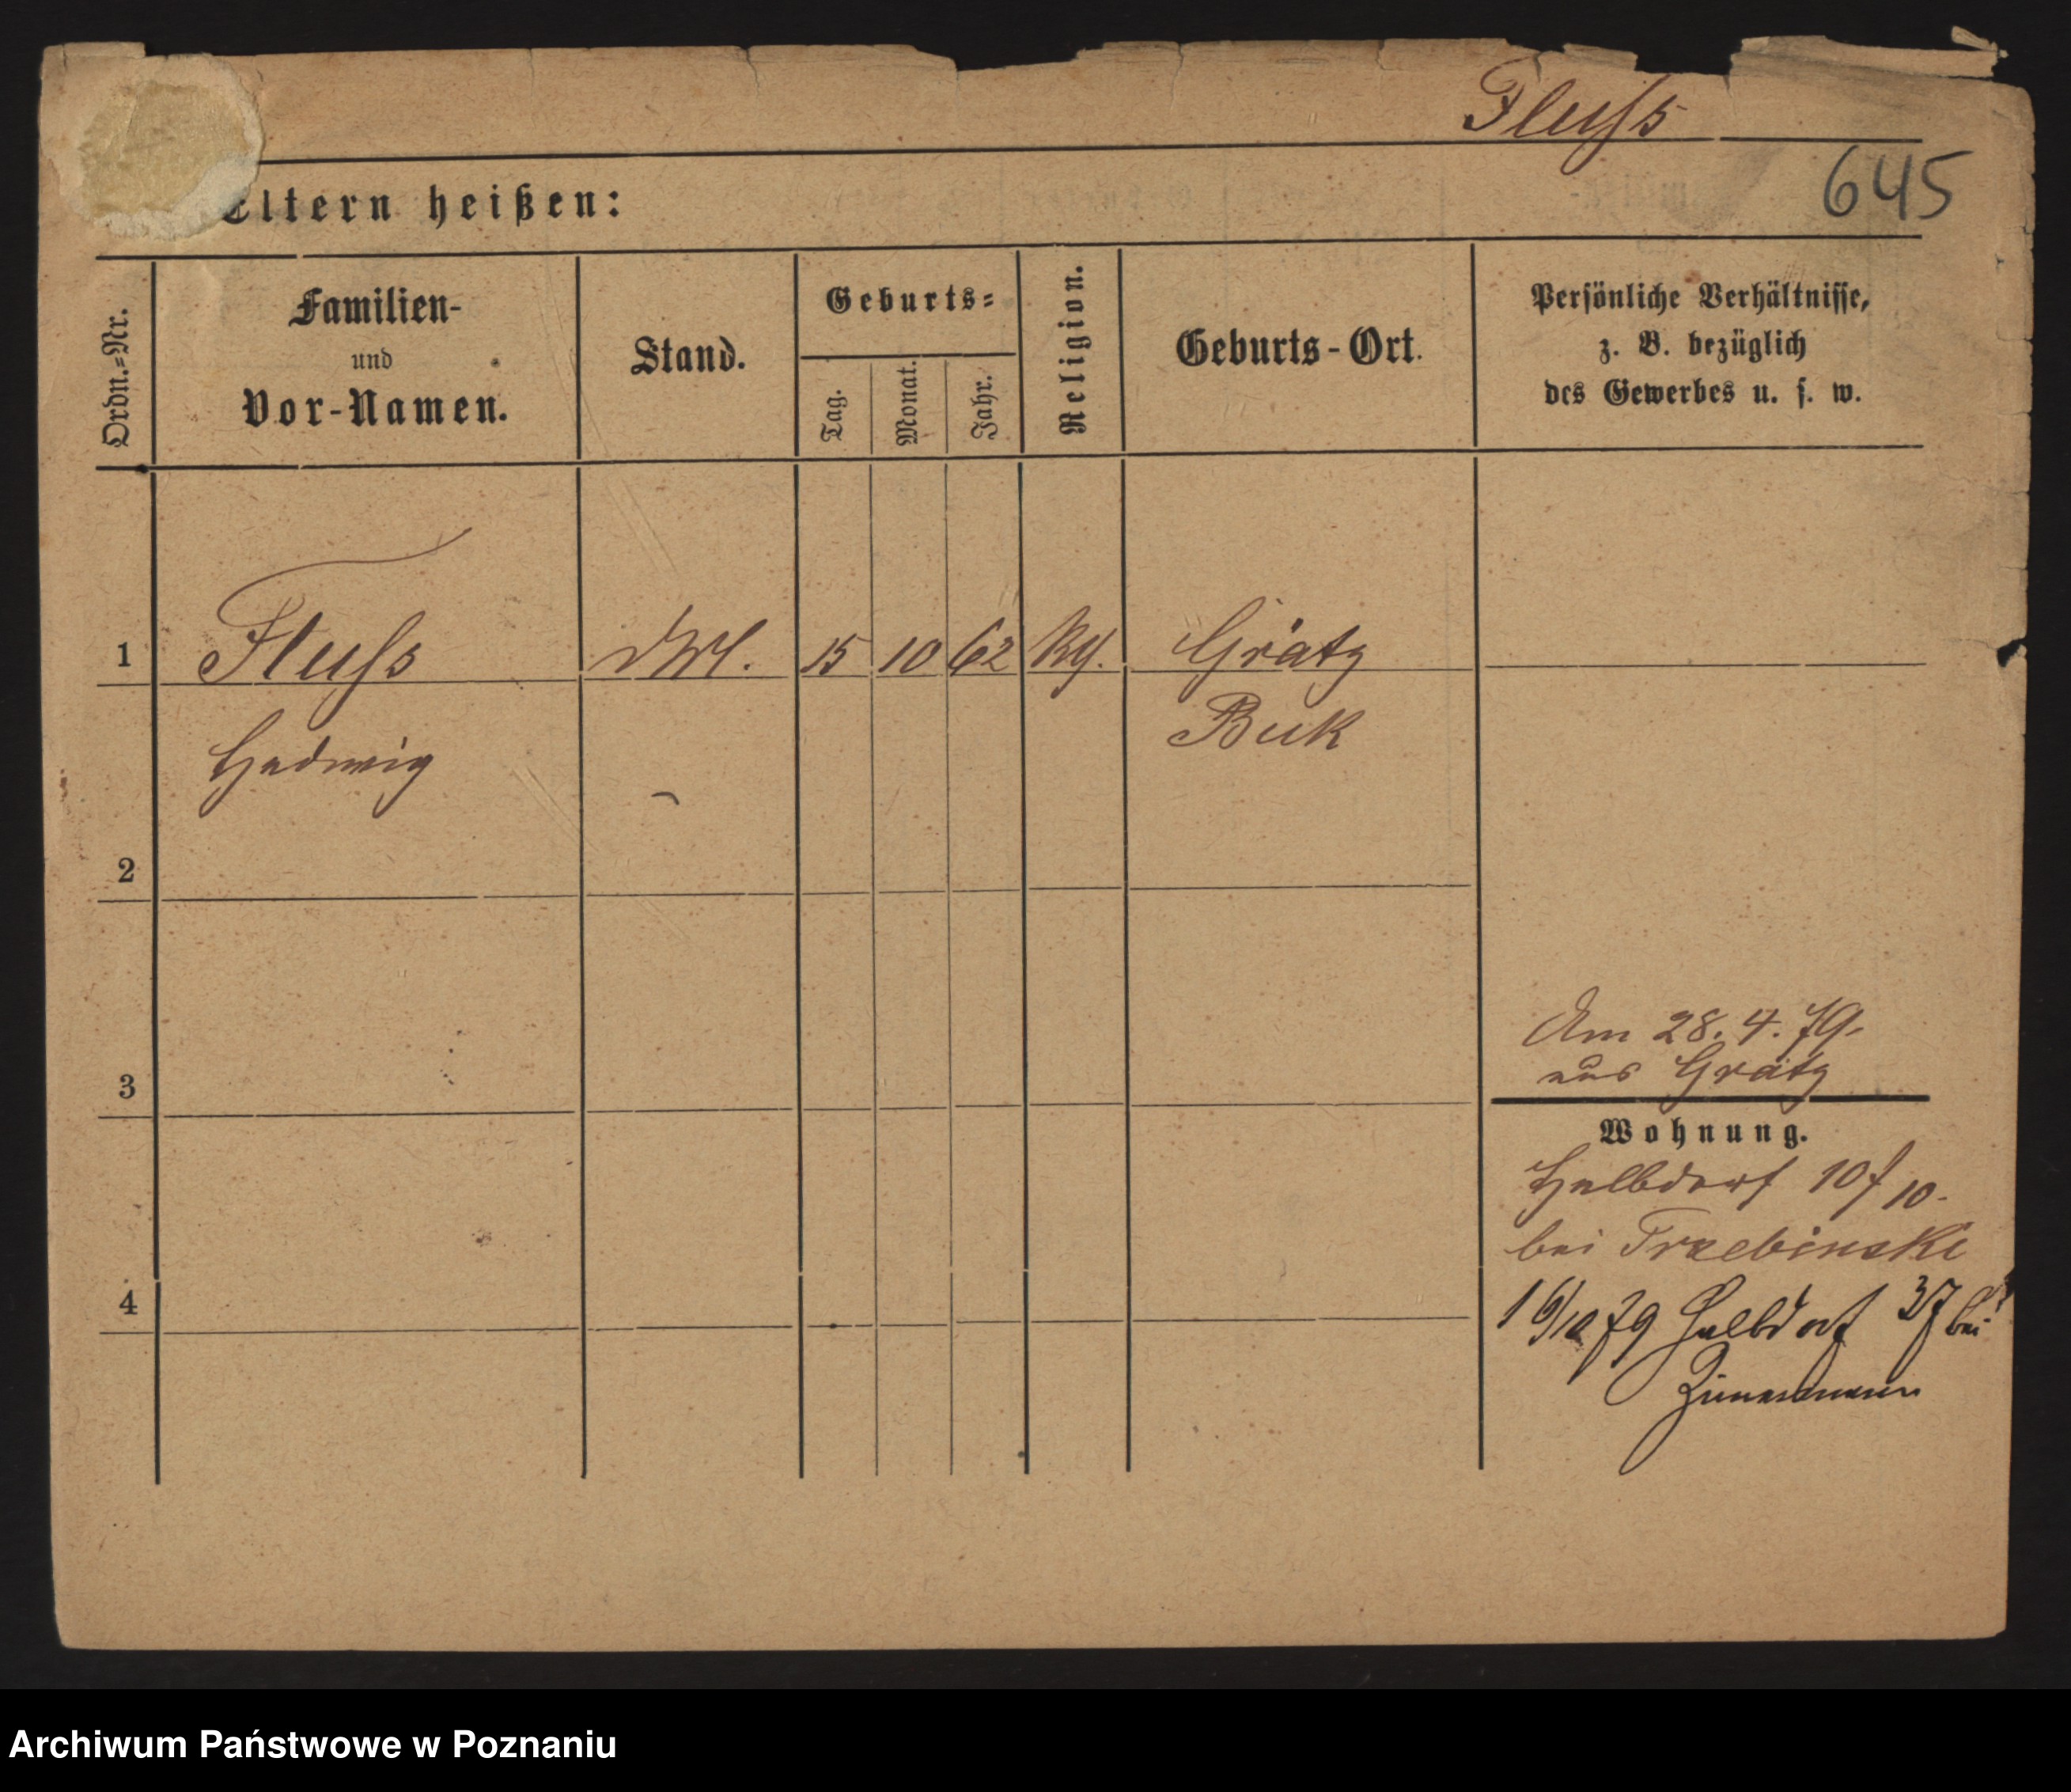 Fluſs
645
Eltern heißen:
Ordn.=Nr.
Familien-
und
Vor-Namen.
Stand.
Geburts=
Tag.
Monat.
Jahr.
Religion.
Geburts-Ort.
Persönliche Verhältnisse,
z. B. bezüglich
des Gewerbes u. s. w.
1 Fluſs 15 10 62 Grätz
Hedwig Buk
2
3
4
Am 28. 4. 79.
aus Grätz
Wohnung.
Halbdorf 10
bei Trzebinski
79 Halbdorf 37 bei
Zimmermann
Archiwum Państwowe w Poznaniu